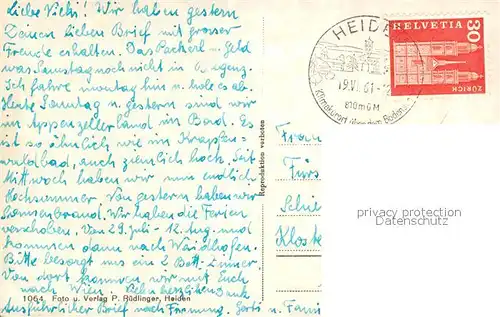 Liebe Vicki! Wir haben gestern
Deinen lieben Brief mit grosser
Freude erhalten. Das Packerl-geld
was Samstag noch nicht in
Ich fahre montag hin u. hole es ab.
Heute Sonntag u. gestern sind wir
im Appenzellerland im Bad. Es
ist so ähnlich wie im Krapfen-
waldbad, auch ziemlich hoch. Seit
Mittwoch haben wir nun endlich
Hochsommer. Von gestern haben wir
Sonnenbrand. Wir haben die Ferien
verschoben. Von 29. Juli - 12. Aug. und
kommen dann nach Waidhofen.
Bitte besorgt uns ein 2 Bett-Zimmer
Von dort kommen wir mit Euch
nach Wien. Vielen herzlichen Dank
Ausführlicher Brief nach Firmung.
1064 Foto u. Verlag P. Rüdlinger, Heiden
Reproduktion verboten
HEIDE
19.VI.61-
810 m ü M
Klimakurort über dem Boden
HELVETIA
30
ZÜRICH
Frau
Fürs
Schi
Kloste
privacy protection
watermark